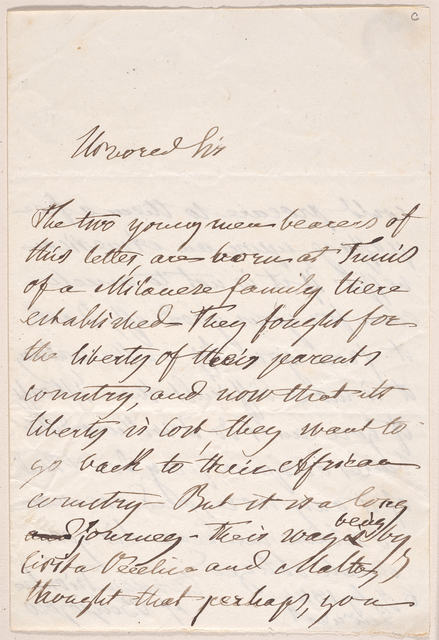 C
Honored Sir
The two young men bearers of
this letter, are born at Tunis
of a Milanese family there
established They fought for
the liberty of their parents
country, and now that its
liberty is lost, they want to
go back to their African
country – But it is a long
and journey – their way being by
Civita Vecchia and Malta, I
thought that perhaps, you